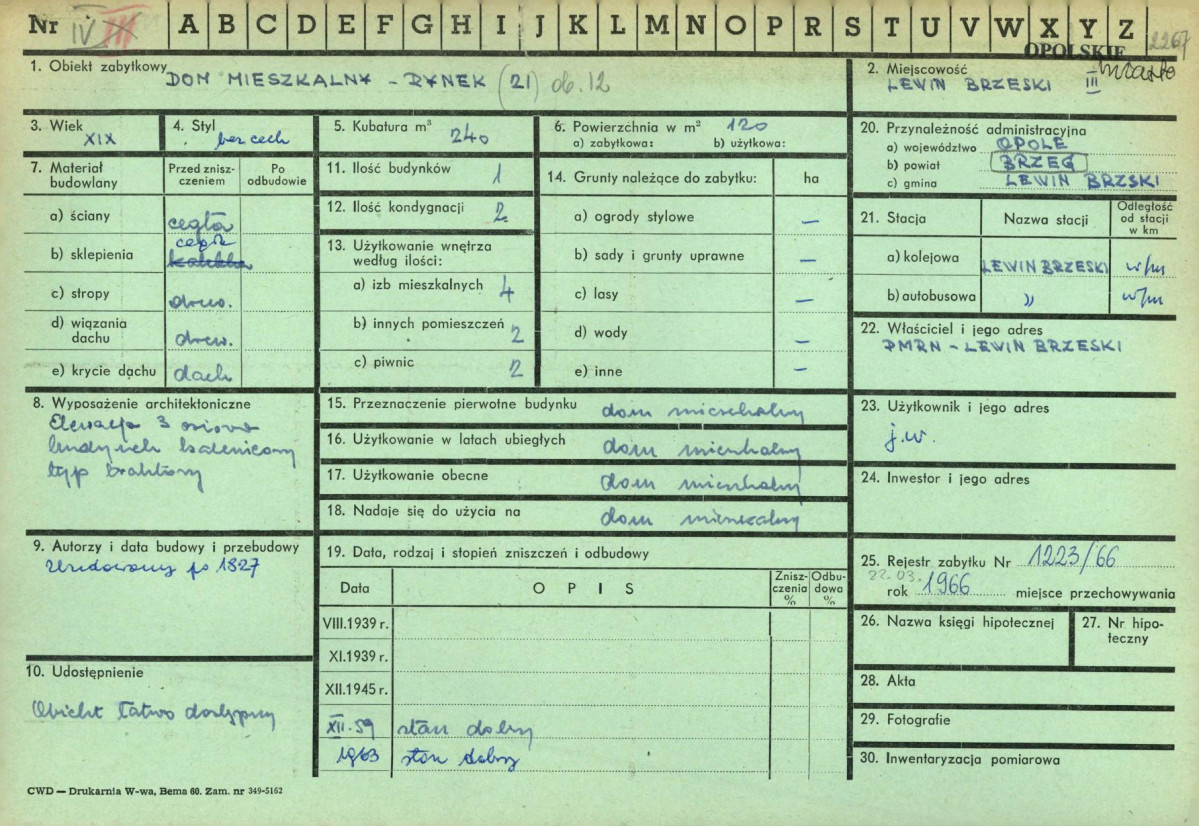 Nr IV III A B C D E F G H I J K L M N O P R S T U V W X Y Z 2267
OPOLSKIE
miasto
1. Obiekt zabytkowy DOM MIESZKALNY - RYNEK (21) ob. 12
2. Miejscowość
LEWIN BRZESKI III
3. Wiek
XIX
4. Styl
bez cech
5. Kubatura m³
240
6. Powierzchnia w m² 120
a) zabytkowa: b) użytkowa:
7. Materiał budowlany
Przed zniszczeniem
Po odbudowie
a) ściany cegła
b) sklepienia cegła
c) stropy drew.
d) wiązania dachu drew.
e) krycie dachu dach
8. Wyposażenie architektoniczne
Elewacja 3 osiowa
budynek kalenicowy
typ traktowy
9. Autorzy i data budowy i przebudowy
Zbudowany po 1827
10. Udostępnienie
Obiekt łatwo dostępny
11. Ilość budynków 1
12. Ilość kondygnacji 2
13. Użytkowanie wnętrza
według ilości:
a) izb mieszkalnych 4
b) innych pomieszczeń 2
c) piwnic 2
14. Grunty należące do zabytku: ha
a) ogrody stylowe —
b) sady i grunty uprawne —
c) lasy —
d) wody —
e) inne —
15. Przeznaczenie pierwotne budynku dom mieszkalny
16. Użytkowanie w latach ubiegłych dom mieszkalny
17. Użytkowanie obecne dom mieszkalny
18. Nadaje się do użycia na dom mieszkalny
19. Data, rodzaj i stopień zniszczeń i odbudowy
Data O P I S Zniszczenia % Odbudowa %
VIII.1939 r.
XI.1939 r.
XII.1945 r.
XII.59 stan dobry
1963 stan dobry
20. Przynależność administracyjna
a) województwo OPOLE
b) powiat BRZEG
c) gmina LEWIN BRZSKI
21. Stacja Nazwa stacji Odległość od stacji w km
a) kolejowa LEWIN BRZESKI w/m
b) autobusowa " w/m
22. Właściciel i jego adres
PMRN - LEWIN BRZESKI
23. Użytkownik i jego adres
j.w.
24. Inwestor i jego adres
25. Rejestr zabytku Nr 1223/66
22.03.
rok 1966 miejsce przechowywania
26. Nazwa księgi hipotecznej
27. Nr hipoteczny
28. Akta
29. Fotografie
30. Inwentaryzacja pomiarowa
CWD — Drukarnia W-wa, Bema 60. Zam. nr 349-5162